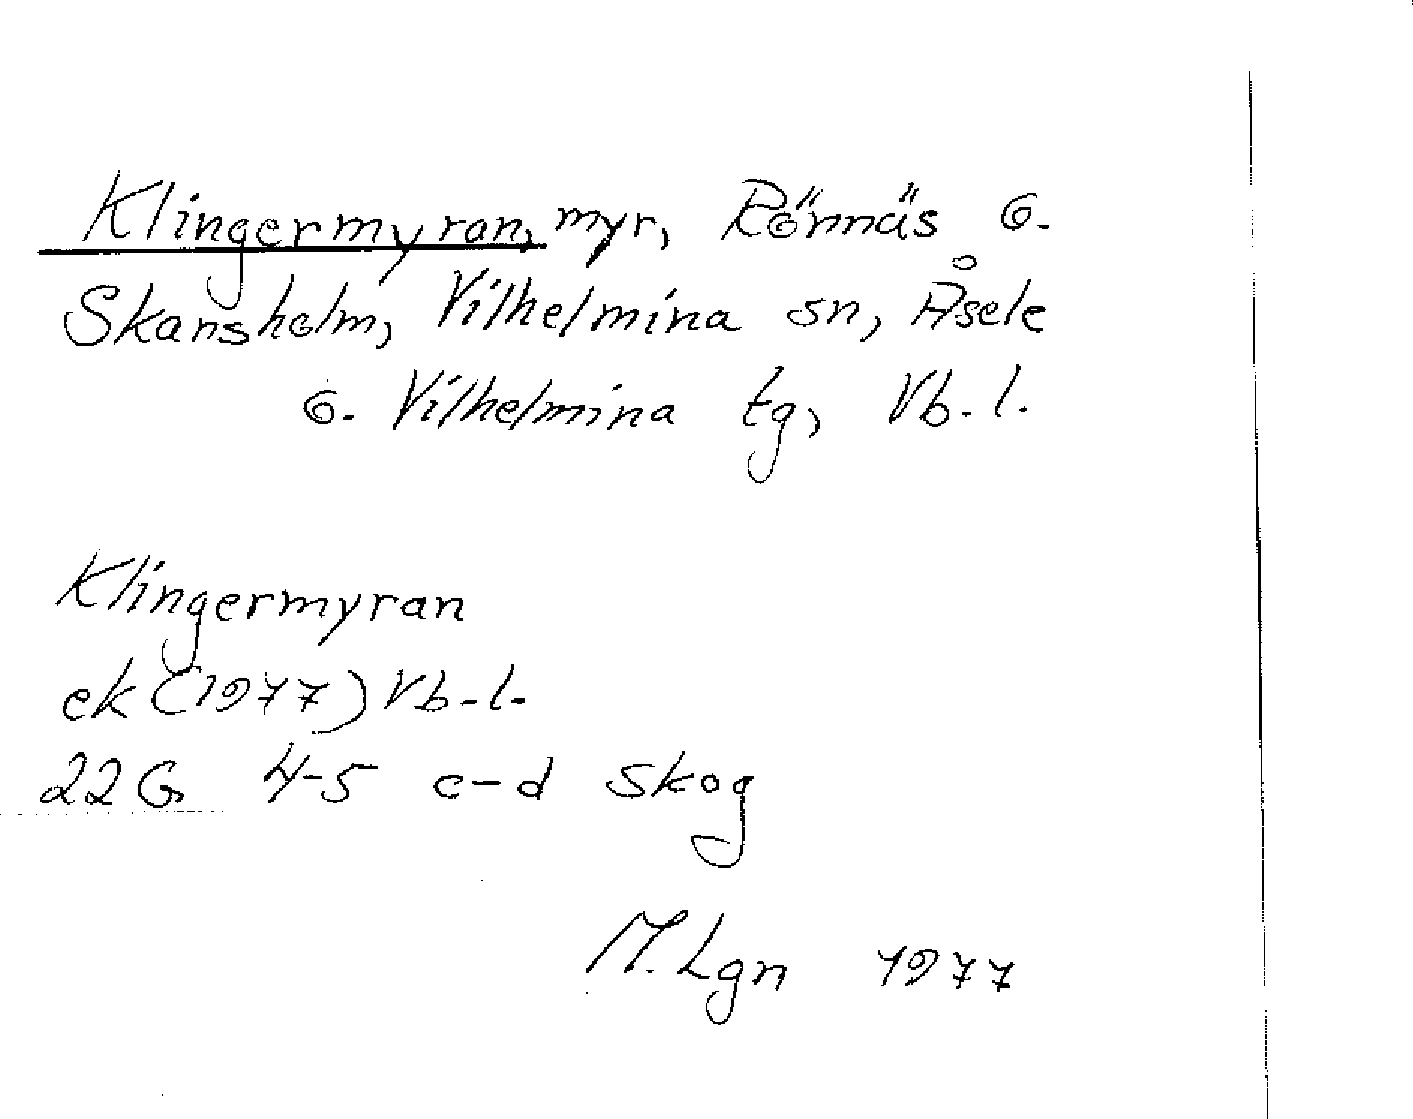 Klingermyran, myr, Rönnäs o.
Skansholm, Vilhelmina sn, Åsele
o. Vilhelmina tg, Vb. l.
Klingermyran
ek (1977) Vb. l.
22 G 4-5 c-d skog
M. Lgn 1977